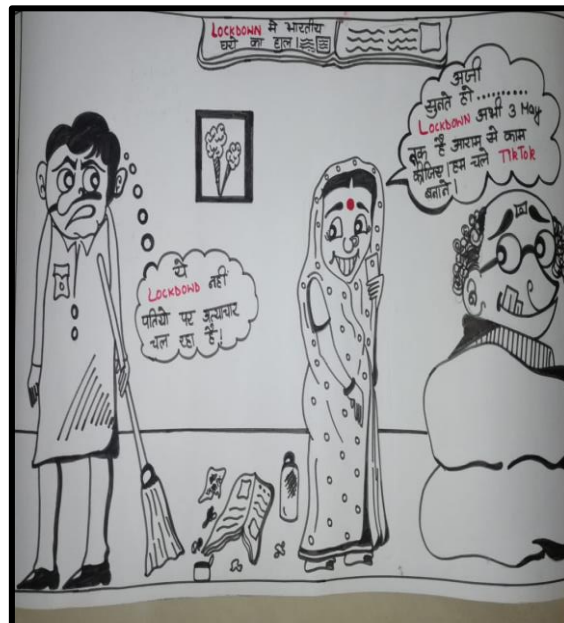 LOCKDOWN मे भारतीय
घरो का हाल।
अजी
सुनते हो.........
LOCKDOWN अभी 3 May
तक है आराम से काम
कीजिए। हम चले TIKTOK
बनाने।
ये
LOCKDOWD नही
पतियो पर अत्याचार
चल रहा है!